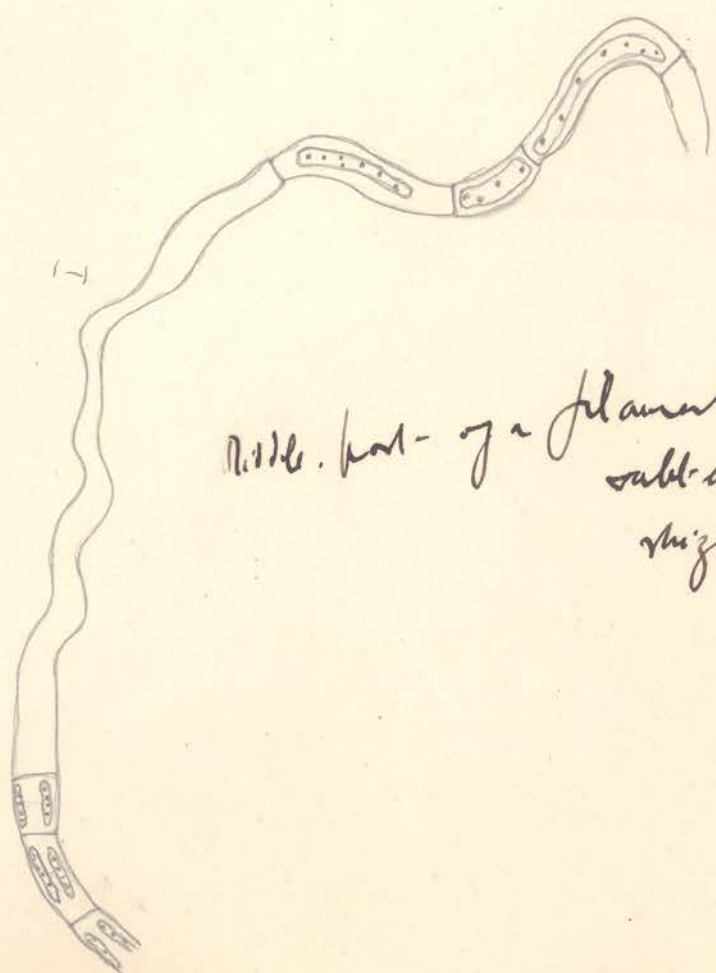 Middle. part - of a filament
salt-
rhiz